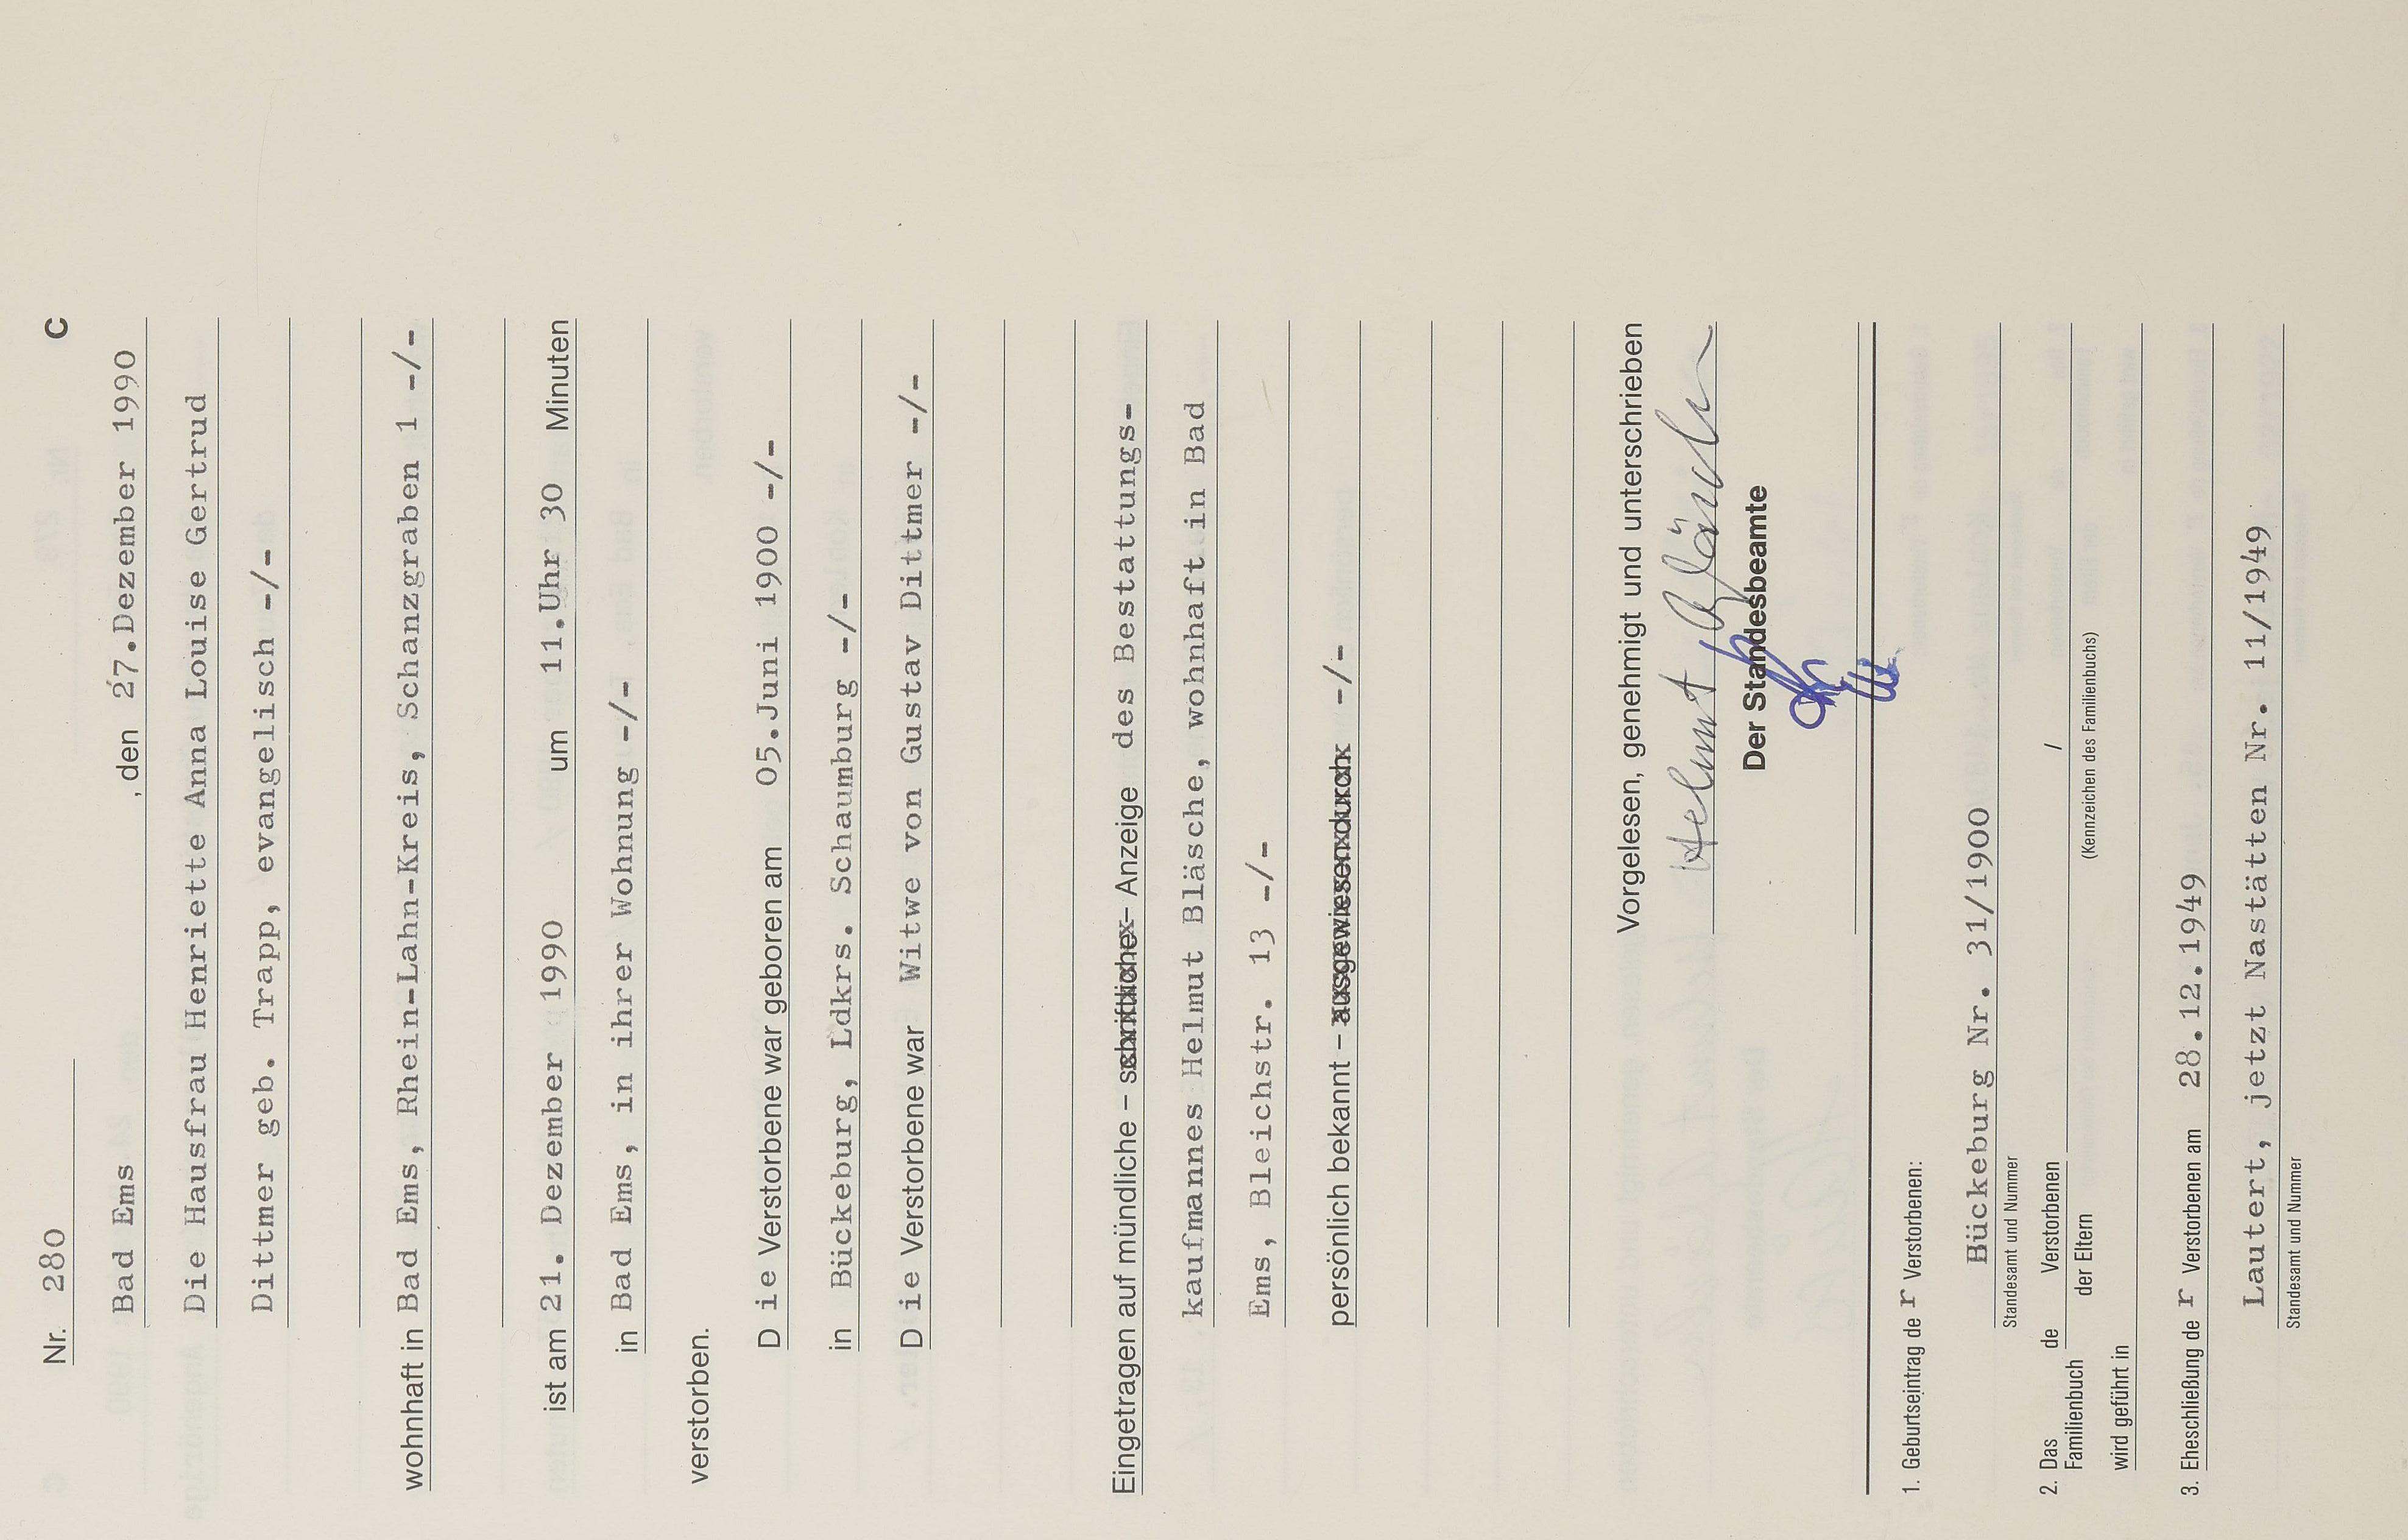 Nr. 280 C
Bad Ems , den 27.Dezember 1990
Die Hausfrau Henriette Anna Louise Gertrud
Dittmer geb. Trapp, evangelisch -/-
wohnhaft in Bad Ems, Rhein-Lahn-Kreis, Schanzgraben 1 -/-
ist am 21. Dezember 1990 um 11.Uhr 30 Minuten
in Bad Ems, in ihrer Wohnung -/-
verstorben.
D ie Verstorbene war geboren am 05.Juni 1900 -/-
in Bückeburg, Ldkrs. Schaumburg -/-
D ie Verstorbene war Witwe von Gustav Dittmer -/-
Eingetragen auf mündliche – schriftliche – Anzeige des Bestattungs-
kaufmannes Helmut Bläsche, wohnhaft in Bad
Ems, Bleichstr. 13 -/-
persönlich bekannt – ausgewiesen durch -/-
Vorgelesen, genehmigt und unterschrieben
Helmut Bläsche
Der Standesbeamte
1. Geburtseintrag de r Verstorbenen:
Bückeburg Nr. 31/1900
Standesamt und Nummer
2. Das Familienbuch de Verstorbenen /
der Eltern (Kennzeichen des Familienbuchs)
wird geführt in
3. Eheschließung de r Verstorbenen am 28.12.1949
Lautert, jetzt Nastätten Nr. 11/1949
Standesamt und Nummer